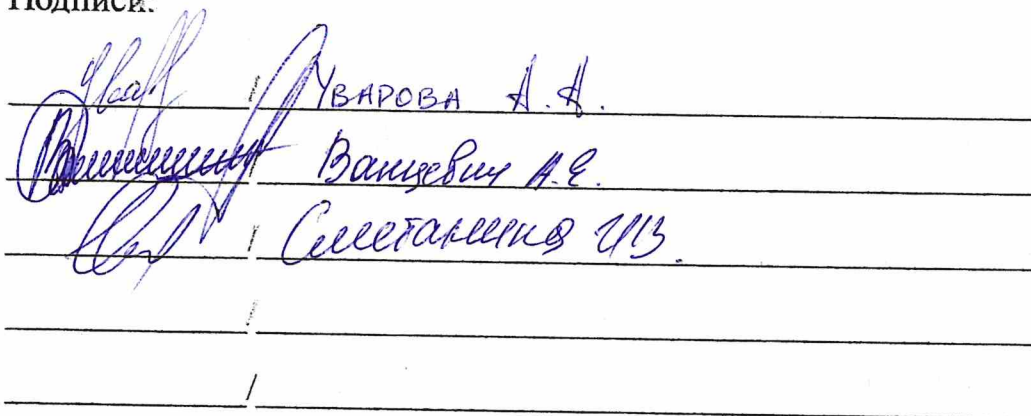 Подписи:
/ УВАРОВА А.А.
/ Ванцевич А.Е.
/ Сметанина И.В.
/
/